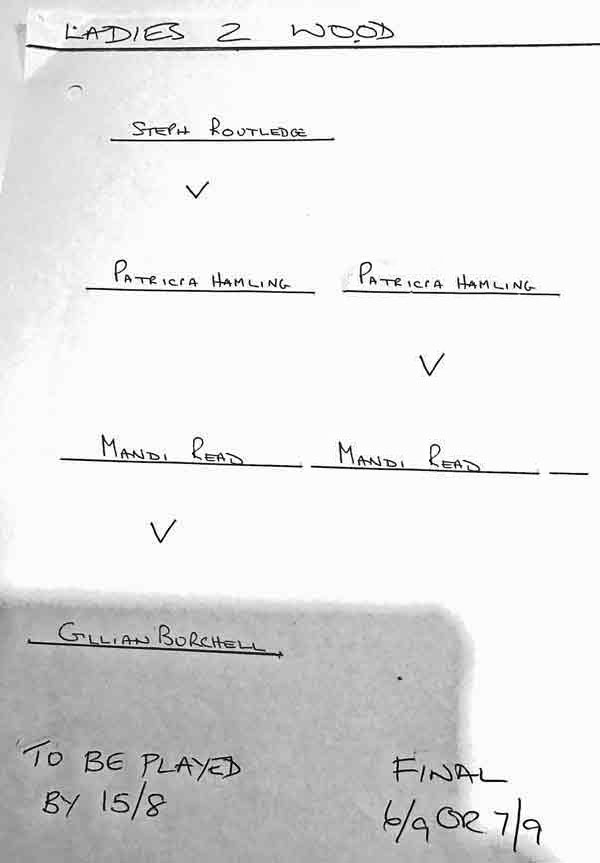 LADIES 2 WOOD
STEPH ROUTLEDGE
V
PATRICIA HAMLING PATRICIA HAMLING
V
MANDI READ MANDI READ
V
GILLIAN BURCHELL
TO BE PLAYED
BY 15/8
FINAL
6/9 OR 7/9